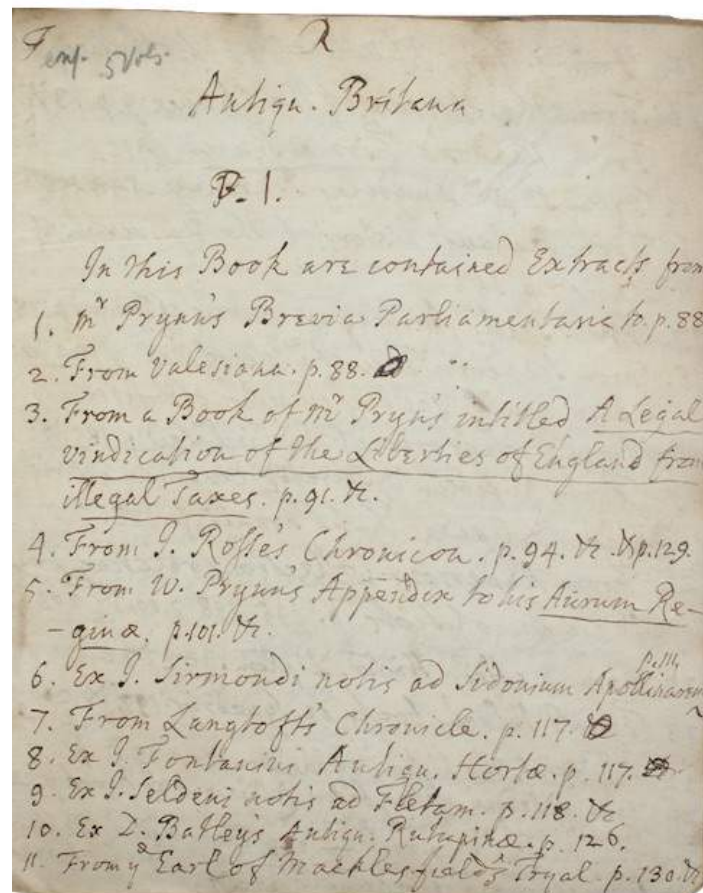 5 Vols.
Antiqu. Britana
P. 1.
In this Book are contained Extracts from
1. Mr Prynn's Brevia Parliamentaria to p. 88
2. From Valesiana. p. 88.
3. From a Book of Mr Pryn's intitled A Legal
Vindication of the Liberties of England from
illegal Taxes. p. 91. &c.
4. From J. Rosse's Chronicon. p. 94. &c. & p. 129.
5. From W. Prynn's Appendix to his Aurum Re-
-ginæ. p. 101. &c.
6. Ex J. Sirmondi notis ad Sidonium Apollinarem p. 111,
7. From Langtoft's Chronicle. p. 117.
8. Ex J. Fontanini Antiqu. Hortæ. p. 117.
9. Ex J. Seldeni notis ad Fletam. p. 118. &c
10. Ex D. Batley's Antiqu. Rutupinæ. p. 126.
11. From ye Earl of Macklesfield's Tryal. p. 130. &c